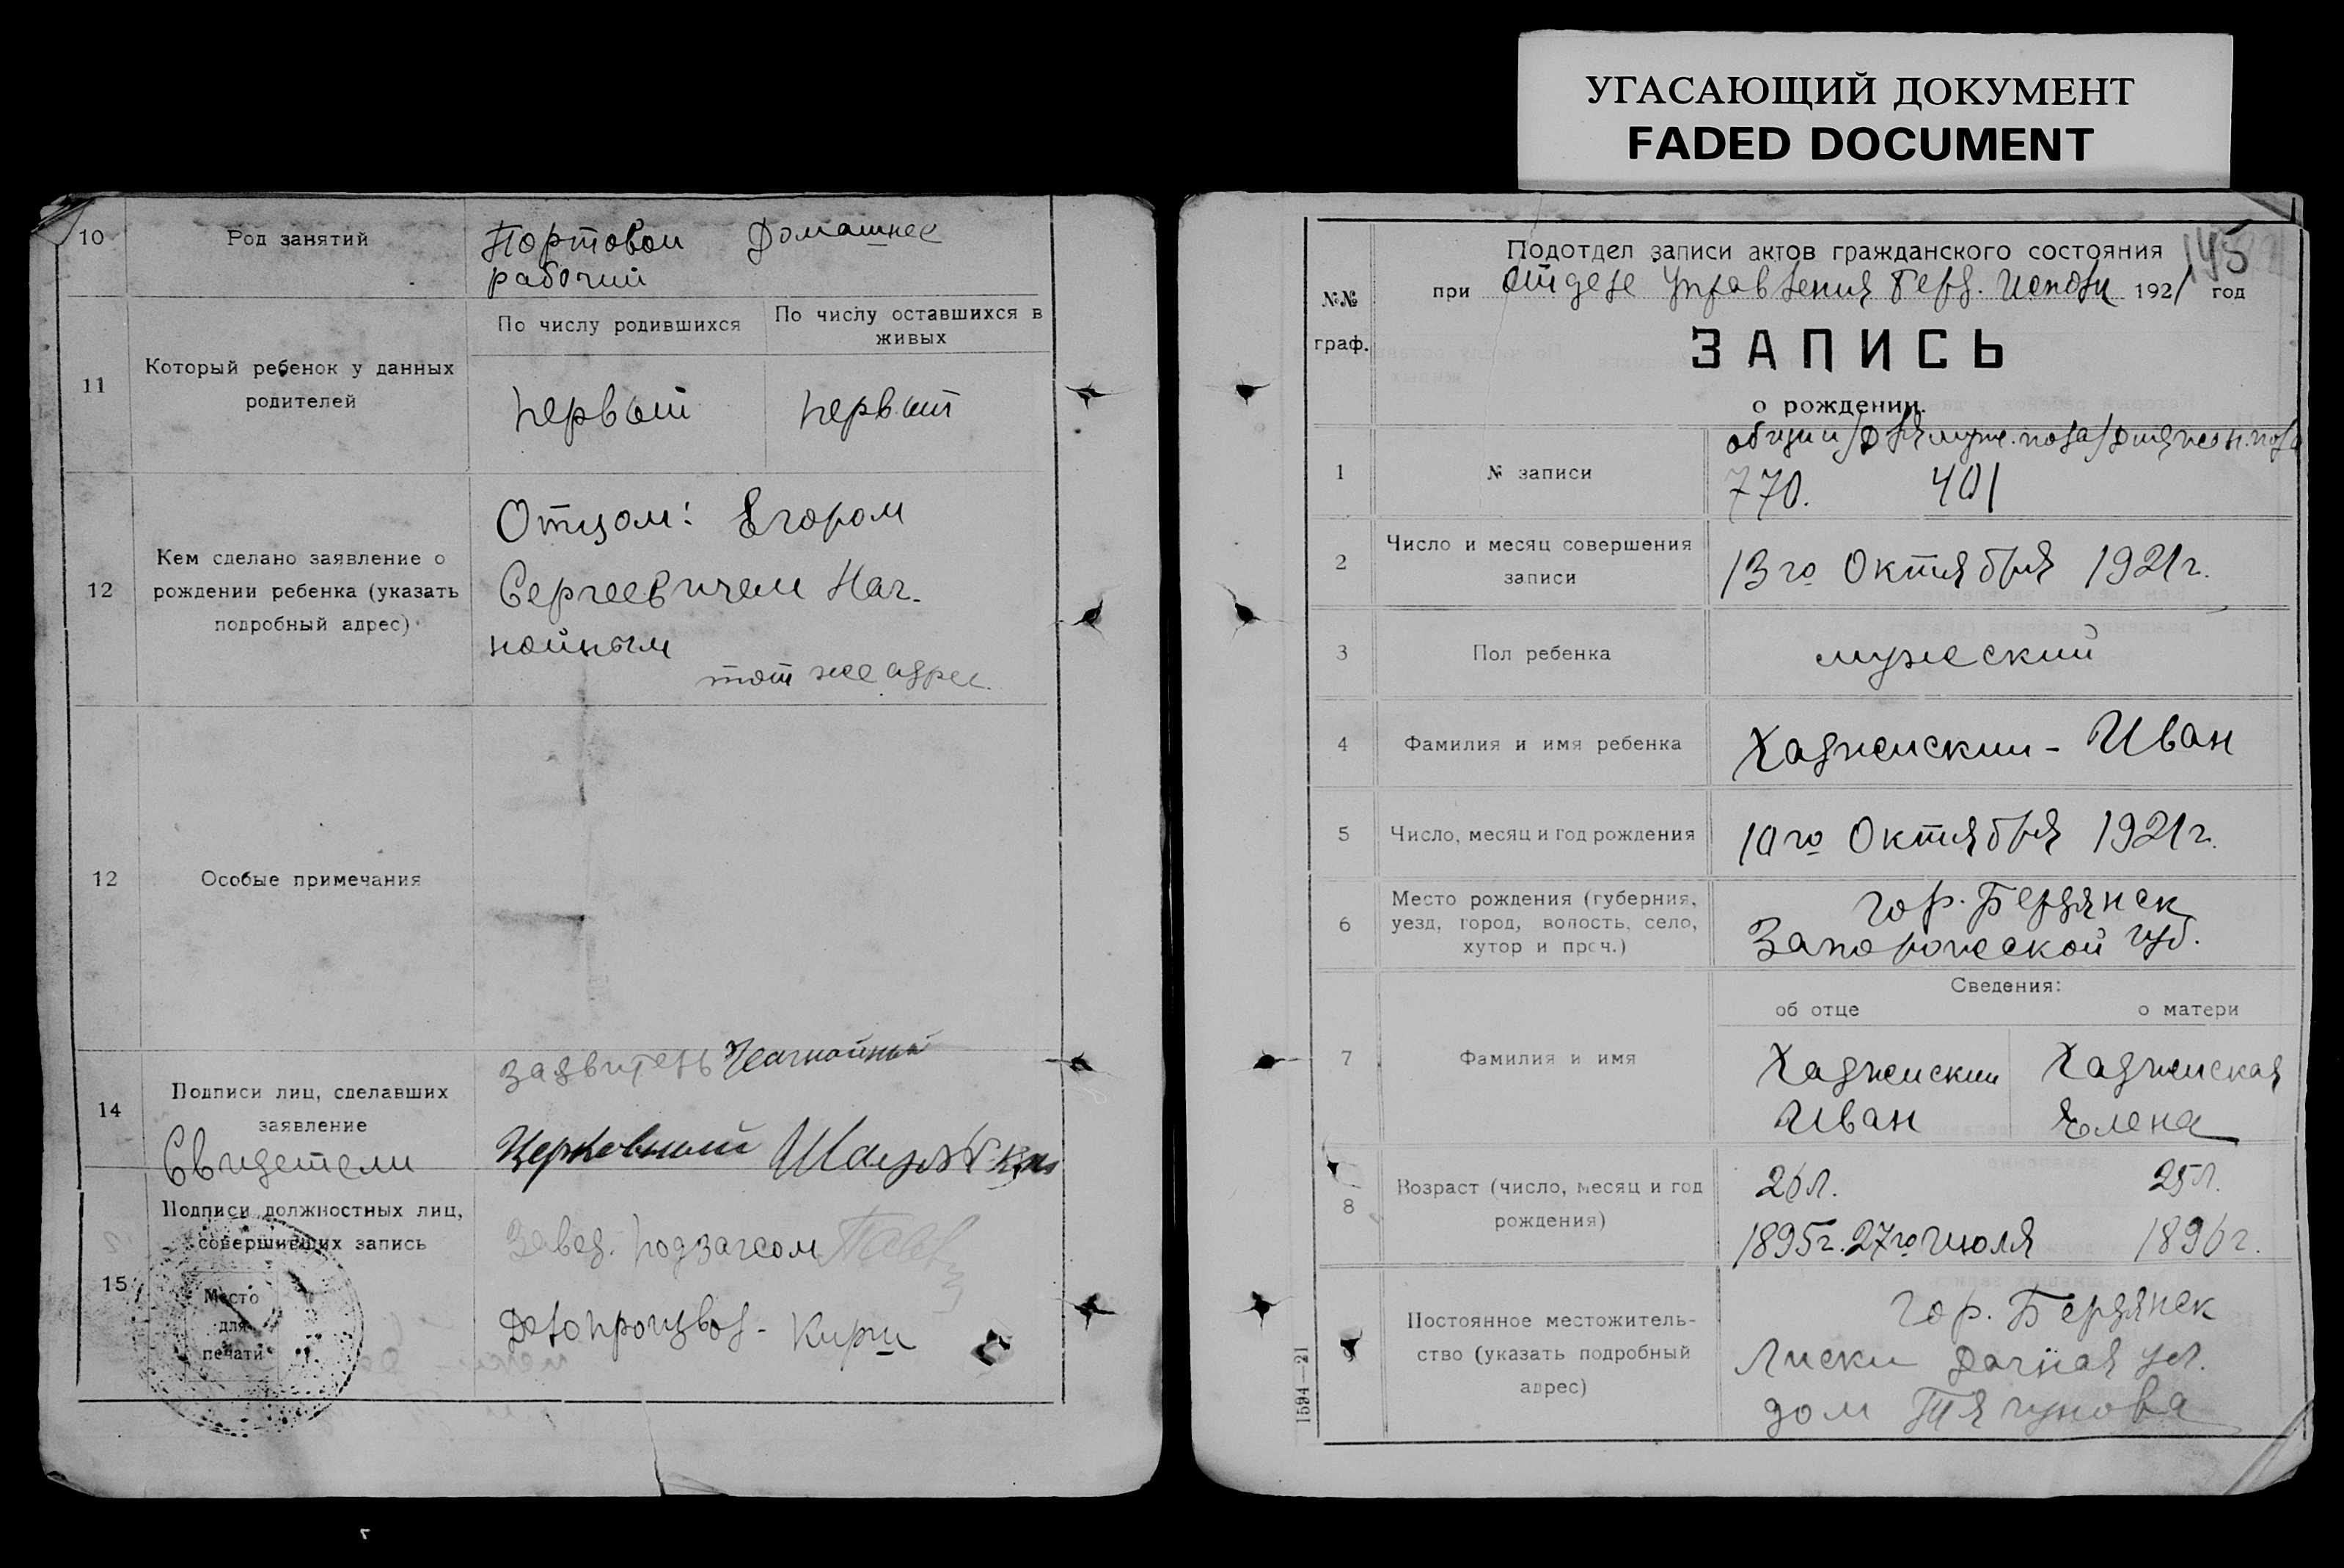 УГАСАЮЩИЙ ДОКУМЕНТ
FADED DOCUMENT
10
Род занятий
Портовой
рабочий
Домашнее
11
Который ребенок у данных
родителей
По числу родившихся
По числу оставшихся в
живых
первый
первый
12
Кем сделано заявление о
рождении ребенка (указать
подробный адрес)
Отцом: Егором
Сергеевичем Наг-
нойным
тот же адрес.
12
Особые примечания
14
Подписи лиц, сделавших
заявление
Свидетели
заявитель Нагнойный
Церковный
15
Подписи должностных лиц,
совершивших запись
Место
для
печати
Завед. подзагсом
Делопроизвод- Кирш
№№
граф.
Подотдел записи актов гражданского состояния
145
при отделе Управления Берд. 1921 год
ЗАПИСЬ
о рождении.
общий/для муж. пола/для жен. пола
1
№ записи
770. 401
2
Число и месяц совершения
записи
13го Октября 1921г.
3
Пол ребенка
мужеский
4
Фамилия и имя ребенка
Хаджейский - Иван
5
Число, месяц и год рождения
10го Октября 1921г.
6
Место рождения (губерния,
уезд, город, волость, село,
хутор и проч.)
гор. Бердянск
Запорожской губ.
7
Фамилия и имя
Сведения:
об отце
о матери
Хаджейский
Иван
Хаджейская
Елена
8
Возраст (число, месяц и год
рождения)
26л.
25л.
1895г. 27го июля
1896г.
9
Постоянное местожитель-
ство (указать подробный
адрес)
гор. Бердянск
Лиски Дачная ул.
дом Тягунова
1594—21